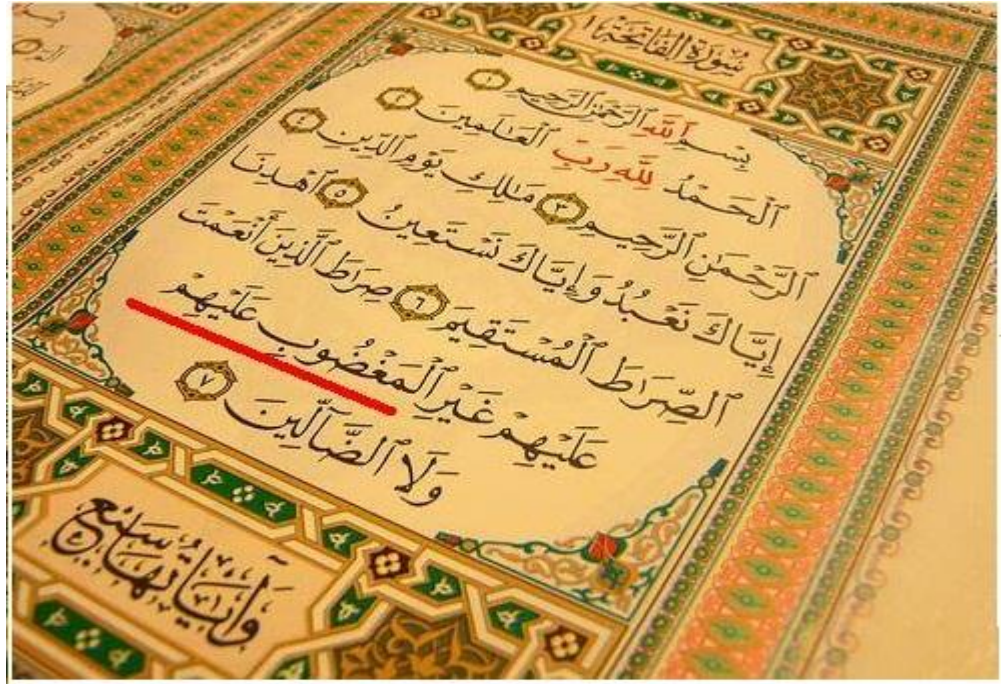 سُورَةُ الفَاتِحَة ١
بِسْمِ ٱللَّهِ ٱلرَّحْمَٰنِ ٱلرَّحِيمِ ١
ٱلْحَمْدُ لِلَّهِ رَبِّ ٱلْعَٰلَمِينَ ٢
ٱلرَّحْمَٰنِ ٱلرَّحِيمِ ٣ مَٰلِكِ يَوْمِ ٱلدِّينِ ٤
إِيَّاكَ نَعْبُدُ وَإِيَّاكَ نَسْتَعِينُ ٥ ٱهْدِنَا
ٱلصِّرَٰطَ ٱلْمُسْتَقِيمَ ٦ صِرَٰطَ ٱلَّذِينَ أَنْعَمْتَ
عَلَيْهِمْ غَيْرِ ٱلْمَغْضُوبِ عَلَيْهِمْ
وَلَا ٱلضَّآلِّينَ ٧
وَآيَاتُهَا سَبْعٌ